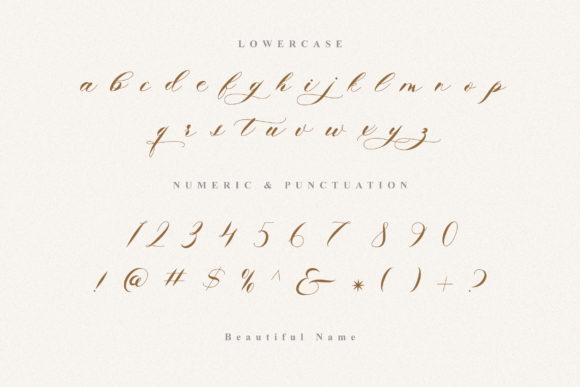 LOWERCASE
a b c d e f g h i j k l m n o p
q r s t u v w x y z
NUMERIC & PUNCTUATION
1 2 3 4 5 6 7 8 9 0
! @ # $ % ^ & * ( ) + ?
Beautiful Name